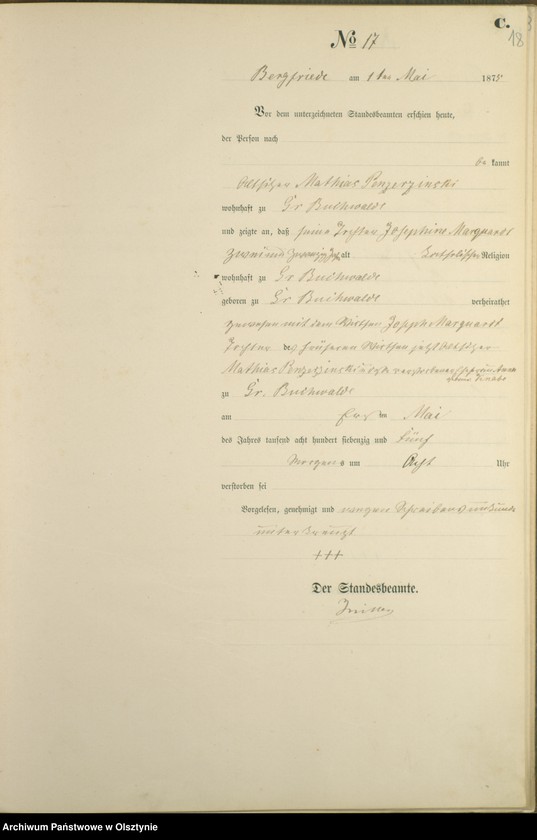 C.
18
No 17
Bergfriede am 1ten Mai 1875
Vor dem unterzeichneten Standesbeamten erschien heute,
der Person nach
be kannt
Altsitzer Mathias Penzerzinski
wohnhaft zu Gr Buchwalde
und zeigte an, daß seine Tochter Josephine Marquardt
zweiund zwanzig Jahr alt Katholischer Religion
wohnhaft zu Gr Buchwalde
geboren zu Gr Buchwalde verheirathet
gewesen mit dem Wirthen Joseph Marquardt
Tochter des früheren Wirthen jetzt Altsitzer
Mathias Penzerzinski verstorbenen Ehefrau Anna
zu Gr. Buchwalde
am Ersten Mai
des Jahres tausend acht hundert siebenzig und fünf
Morgens um Acht Uhr
verstorben sei
Vorgelesen, genehmigt und wegen Schreibensunkunde
unterkreuzt
+++
Der Standesbeamte.
Archiwum Państwowe w Olsztynie